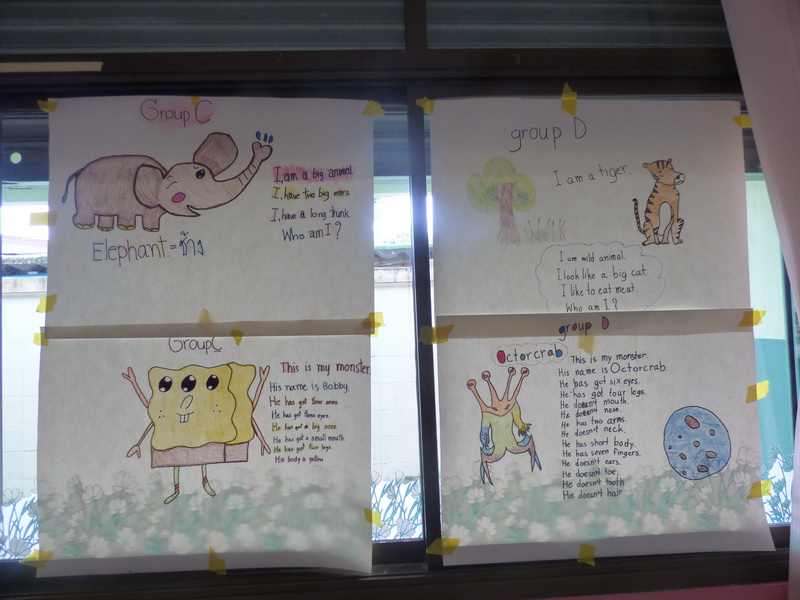 Group C
I, am a big animal.
I, have two big ears.
I, have a long trunk.
Who am I?
Elephant = ช้าง
group D
I am a tiger.
I am wild animal.
I look like a big cat.
I like to eat meat.
Who am I?
Group C
This is my monster.
His name is Bobby.
He has got four arms.
He has got three eyes.
He has got a big nose.
He has got a small mouth.
He has got two legs.
His body is yellow.
group D
Octorcrab
This is my monster.
His name is Octorcrab.
He has got six eyes.
He has got four legs.
He doesn't mouth.
He doesn't nose.
He has two arms.
He doesn't neck.
He has short body.
He has seven fingers.
He doesn't ears.
He doesn't toe.
He doesn't tooth
He doesn't hair